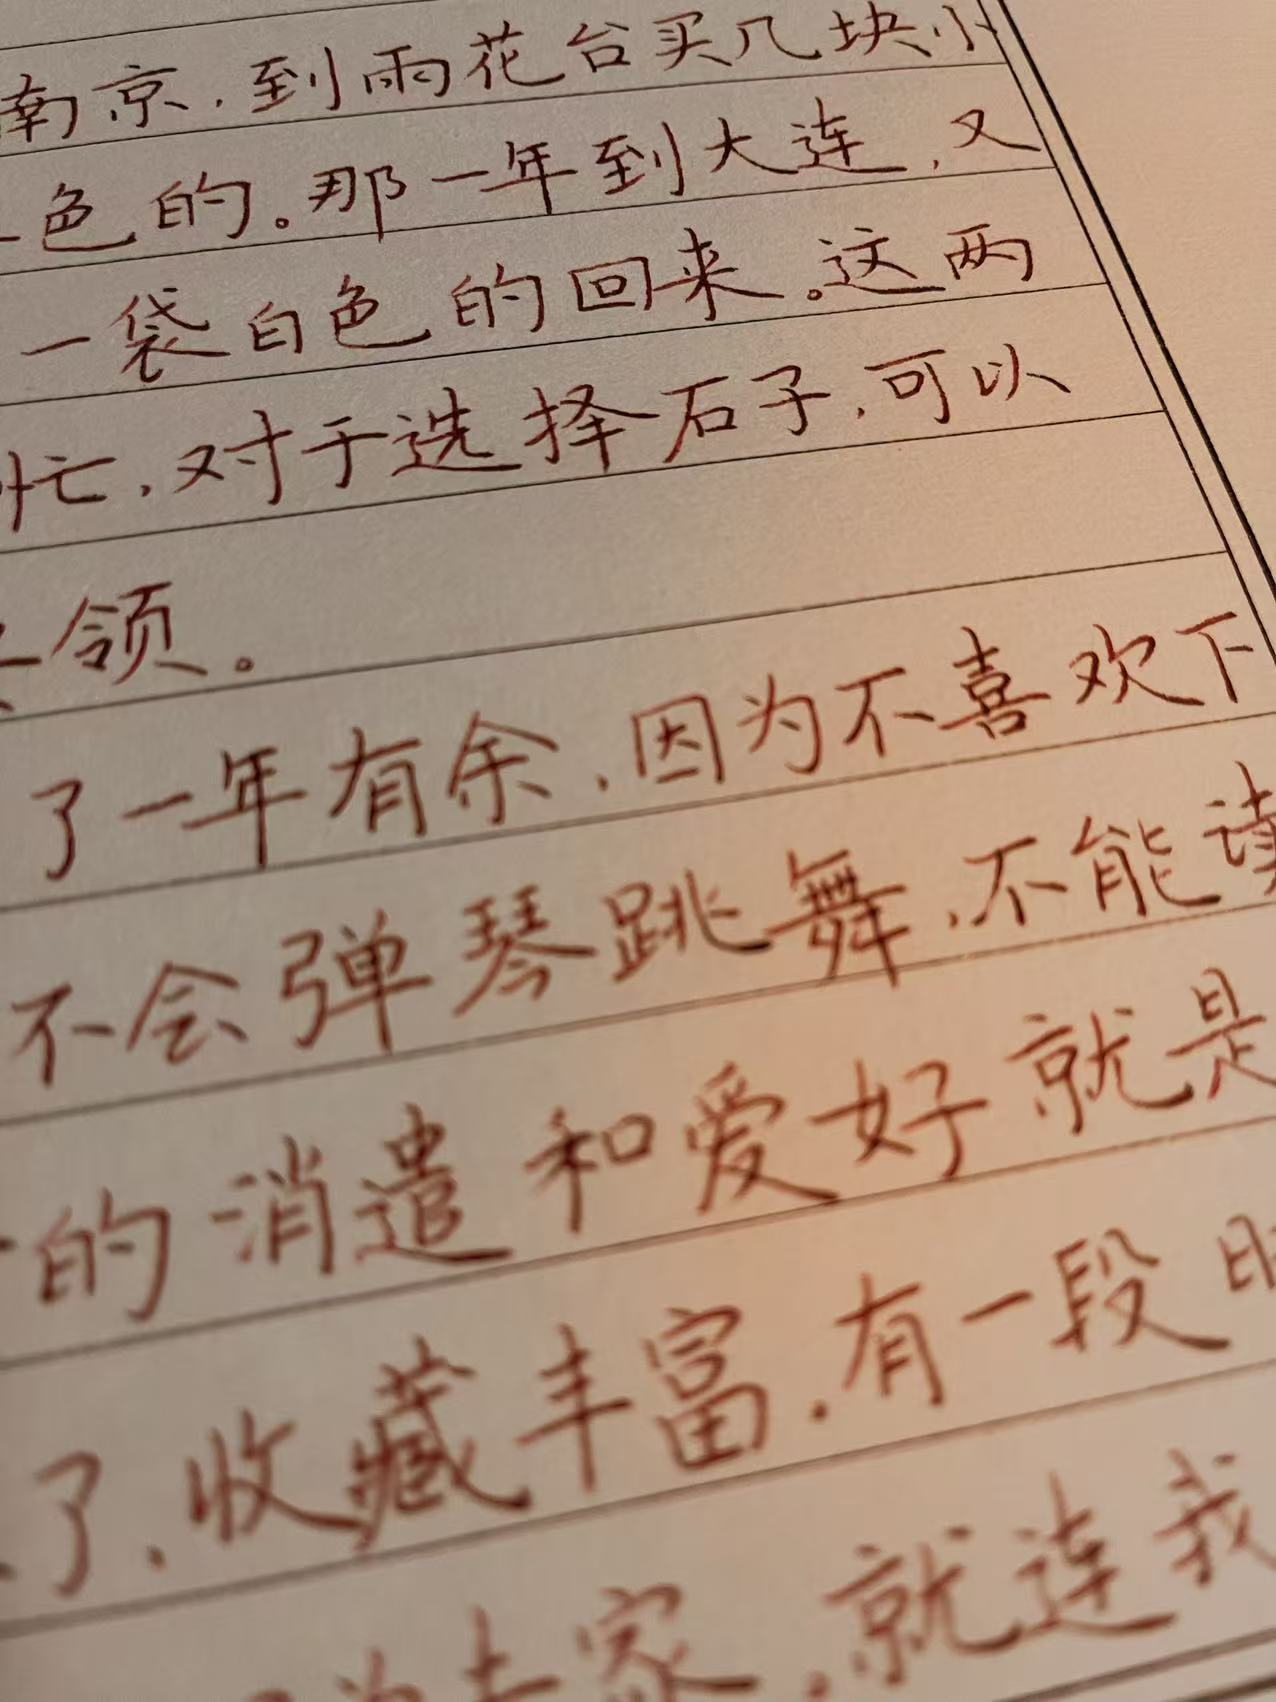 南京，到雨花台买几块小
色的。那一年到大连，又
一袋白色的回来。这两
忙，对于选择石子，可以
领。
了一年有余，因为不喜欢下
不会弹琴跳舞，不能读
的消遣和爱好就是
了，收藏丰富，有一段时
家，就连我